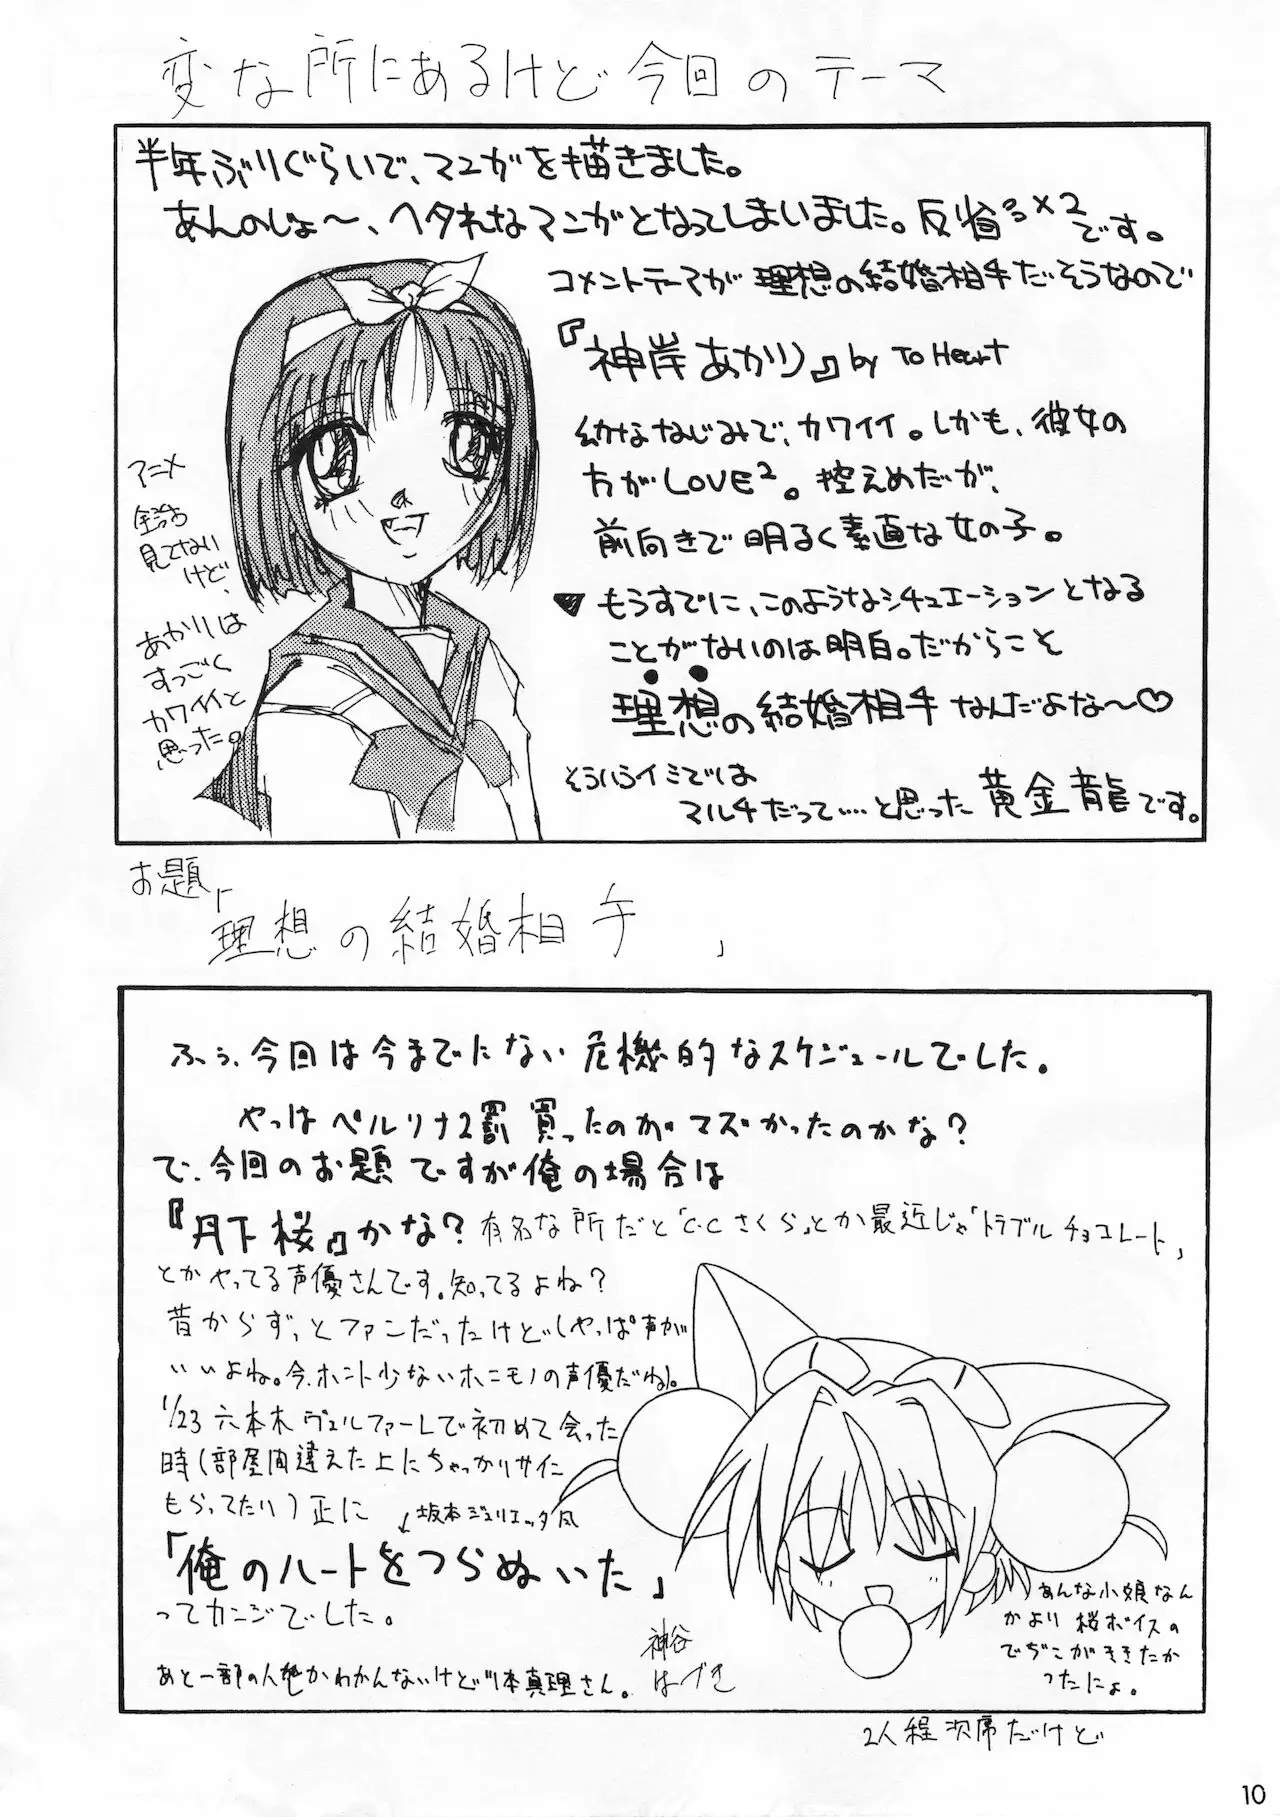 変な所にあるけど今回のテーマ
半年ぶりぐらいで、マンガを描きました。
あんのじょ〜、ヘタれなマンガとなってしまいました。反省っ×2です。
コメントテーマが理想の結婚相手だそうなので
『神岸あかり』by To Heart
幼ななじみで、カワイイ。しかも、彼女の
方がLOVE²。控えめだが、
前向きで明るく素直な女の子。
もうすでに、このようなシチュエーションとなる
ことがないのは明白。だからこそ
理想の結婚相手なんだよな〜♡
そういうイミでは
マルチだって……と思った黄金龍です。
アニメ
見てない
けど、
あかりは
すっごく
カワイイと
思った。
お題
「理想の結婚相手」
ふぅ、今回は今までにない危機的なスケジュールでした。
やっぱペルソナ2罰買ったのがマズかったのかな?
で、今回のお題ですが俺の場合は
『丹下桜』かな?有名な所だと「C.Cさくら」とか最近じゃ「トラブルチョコレート」
とかやってる声優さんです。知ってるよね?
昔からずっとファンだったけど(やっぱ声が
いいよね。今、ホント少ないホンモノの声優だね)。
1/23六本木ヴェルファーレで初めて会った
時(部屋間違えた上にちゃっかりサイン
もらってたり)正に
坂本ジュリエッタ風
「俺のハートをつらぬいた」
ってカンジでした。
神谷
はづき
あんな小娘なん
かより桜ボイスの
でぢこがききたか
ったにょ。
2人程欠席だけど
10